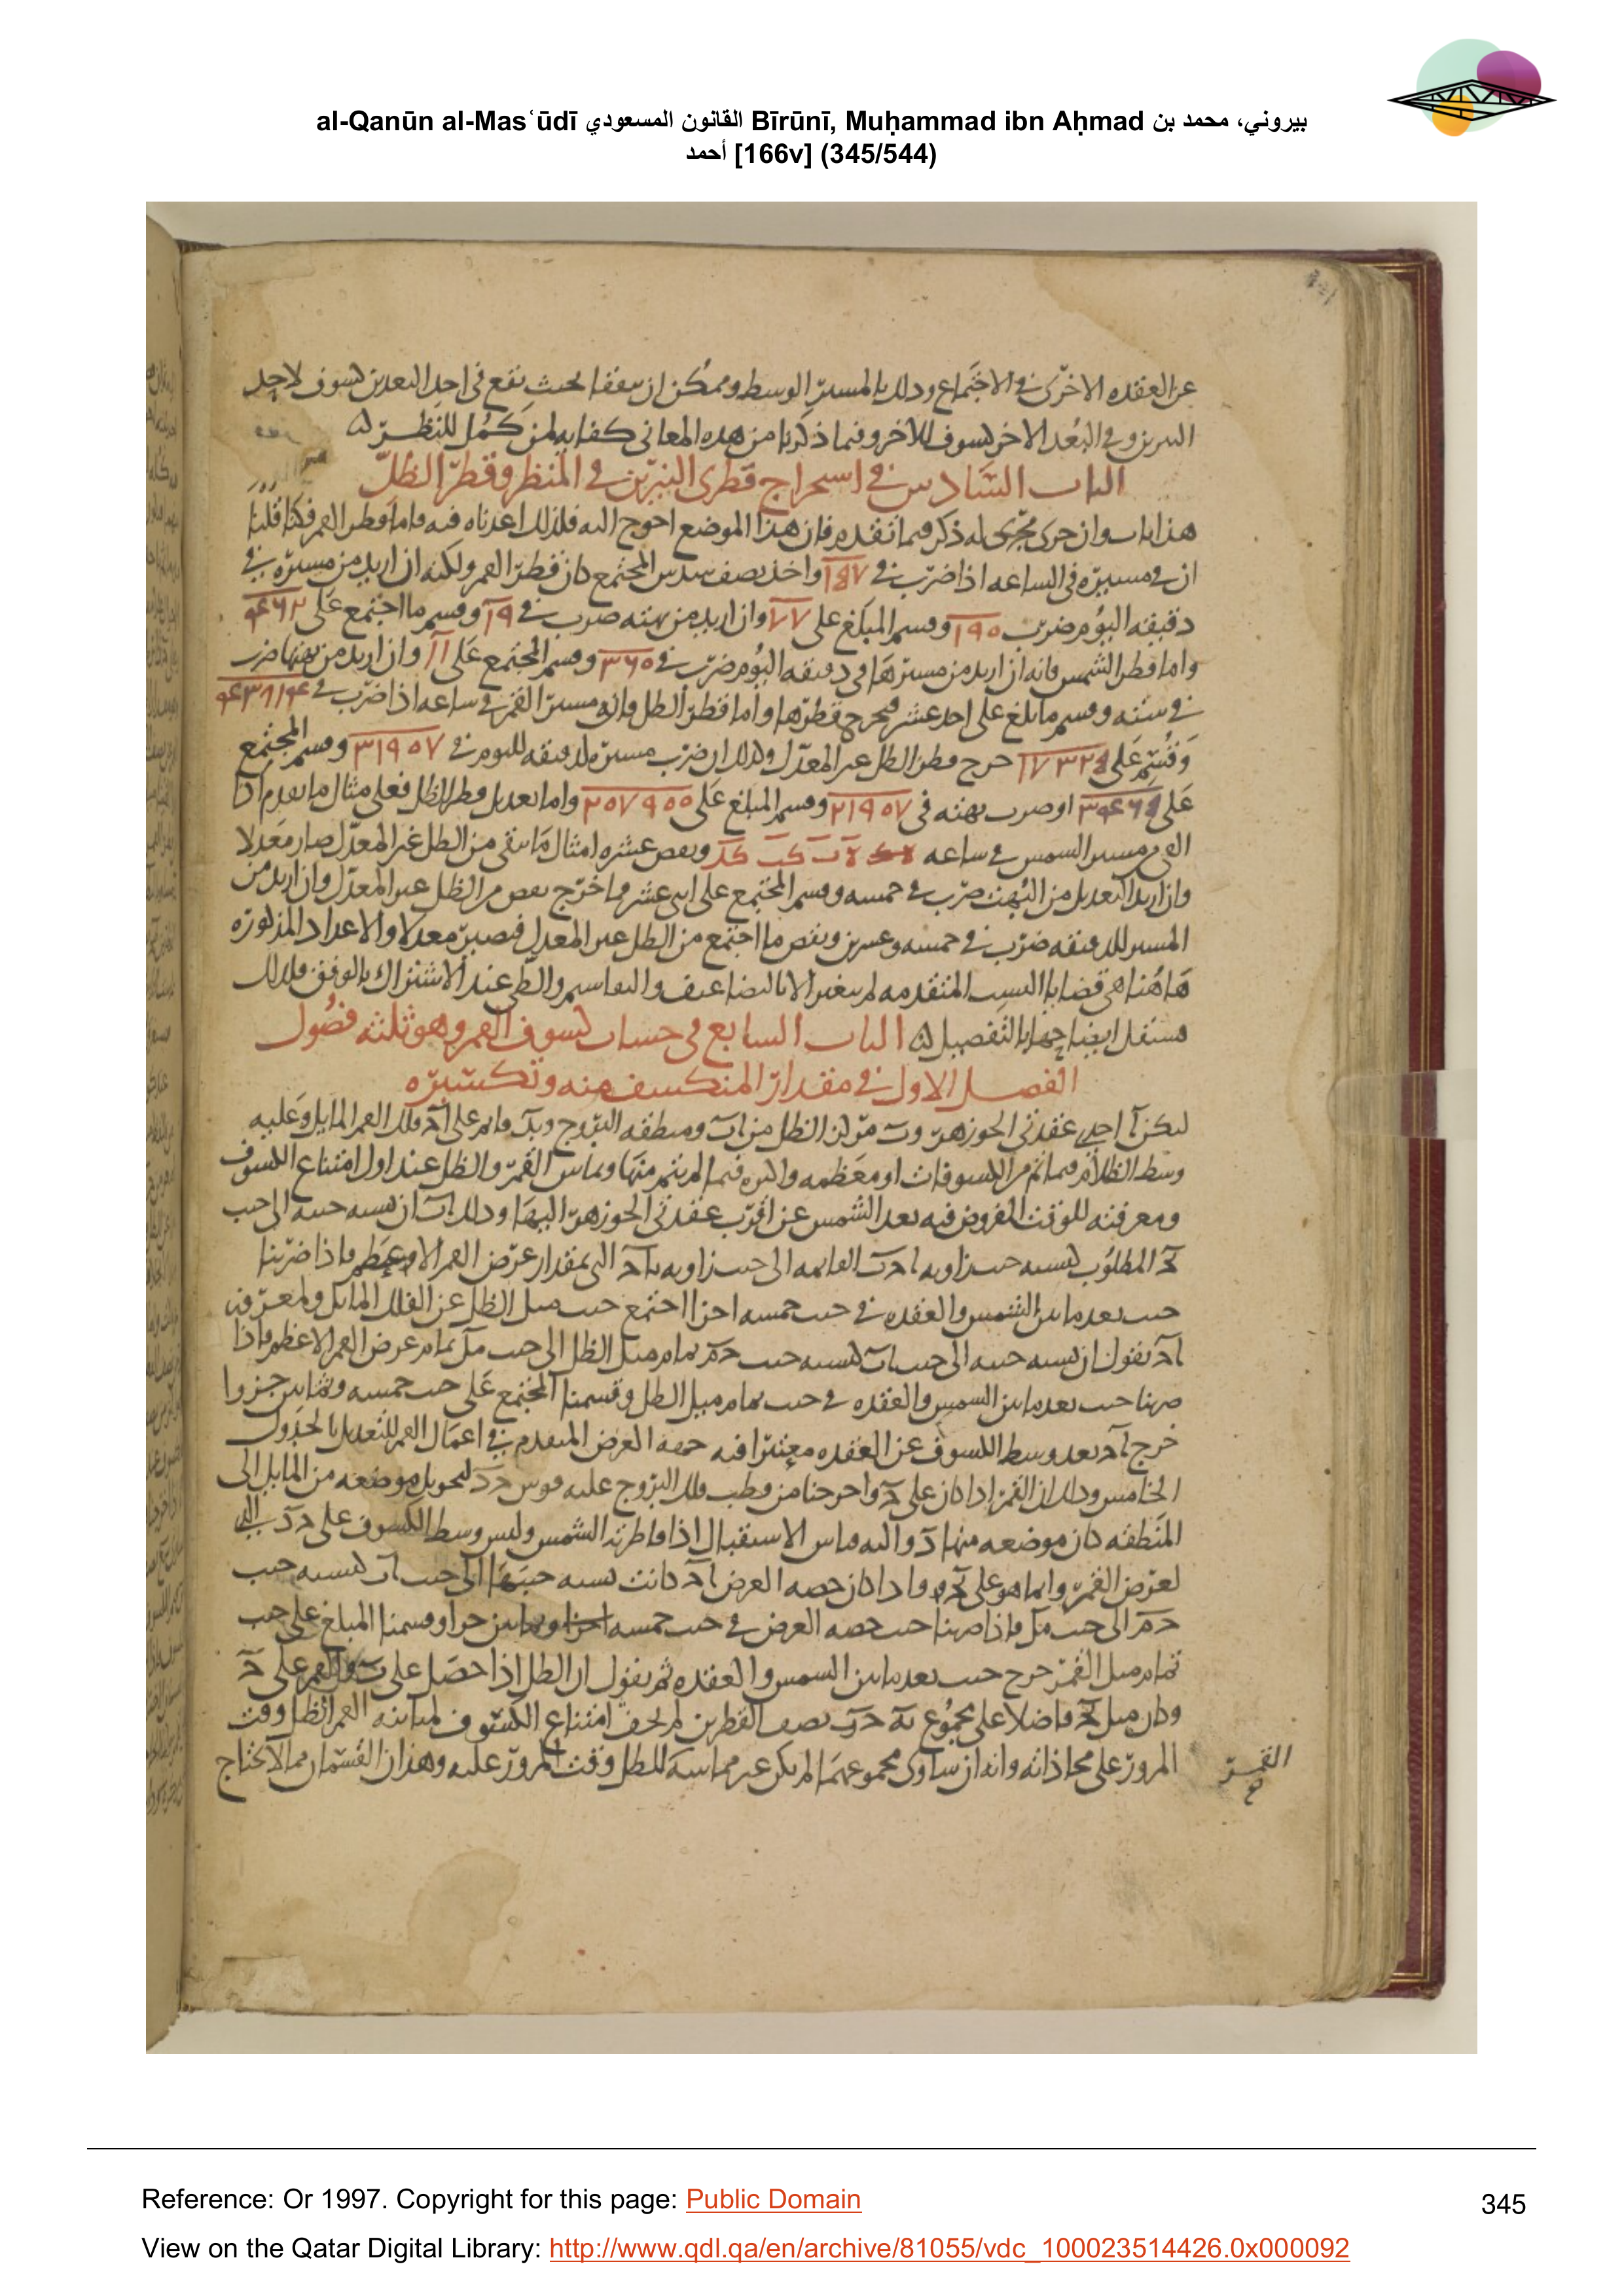 al-Qanūn al-Masʿūdī القانون المسعودي Bīrūnī, Muḥammad ibn Aḥmad بيروني، محمد بن
أحمد [166v] (345/544)
عن العقده الاخرى في الاجتماع وذلك بالمسير الوسط وممكن ان يتفقا بحيث يقع في احد البعدين كسوف لاحد
النيرين وفي البعد الاخر كسوف للاخر وفيما ذكرنا من هذه المعاني كفايه لمن كمل للنظر
الباب السادس في استخراج قطرى النيرين في المنظر وقطر الظل
هذا باب وان جرى مجرى له ذكر فيما تقدم فان هذا الموضع احوج اليه فلذلك اعدناه فيه فاما قطر القمر فكنا قلنا
ان في مسيره في الساعه اذا ضرب في ١٨٧ واخذ نصف سدس المجتمع كان قطر القمر ولكنه ان اريد من مسيره في
دقيقه اليوم ضرب ١٩٥ وقسم المبلغ على ٧٧ وان اريد من بهته ضرب في ١٩ وقسم ما اجتمع على ٤٦٢
واما قطر الشمس فانه ان اريد من مسيرها في دقيقه اليوم ضرب في ٣٦٥ وقسم المجتمع على ١١ وان اريد من بهتها ضرب
في سته وقسم ما بلغ على احد عشر فيخرج قطرها واما قطر الظل فانه مسير القمر في ساعه اذا ضرب في
وقسم على حرج قطر الظل غير المعدل وكذلك ان ضرب مسيره لدقيقه لليوم في ٣١٩٥٧ وقسم المجتمع
على او ضرب بهته في ٢١٩٥٧ وقسم المبلغ على ٢٥٧٩٥٥ واما تعديل قطر الظل فعلى مثال ما تقدم اذا
القى مسير الشمس في ساعه كب كد ونقص عشره امثال ما بقى من الظل غير المعدل صار معدلا
وان اريد التعديل من البهت ضرب في خمسه وقسم المجتمع على اثنى عشر وما خرج نقص من الظل غير المعدل وان اريد من
المسير للدقيقه ضرب في خمسه وعشرين ونقص ما اجتمع من الظل غير المعدل فيصير معدلا والاعداد المذكوره
هاهنا هي قضايا النسب المتقدمه لم يتغير الا بالتضاعيف والتقاسيم والطى عند الاشتراك بالوفق فلذلك
مستقل ايضاحها بالتفصيل الباب السابع في حساب كسوف القمر وهو ثلثه فصول
الفصل الاول في مقدار المنكسف منه وتكسيره
ليكن ا احدى عقدتى الجوزهر و ب مركز الظل من اب ومنطقه البروج وبد قائم على اح فلك القمر المايل وعليه
وسط الظلام فيما تم من الكسوفات او معظمه واكثره فيما لم يتم منها ويماس القمر والظل عند اول امتناع الكسوف
ومعرفته للوقت المفروض فيه بعد الشمس عن اقرب عقدتى الجوزهر اليها وذلك اب ان نسبه جيبه الى جيب
المطلوب كنسبه جيب زاويه القايمه الى جيب زاويه التى بمقدار عرض القمر الاعظم فاذا ضربنا
جيب بعد ما بين الشمس والعقده في جيب خمسه اجزا اجتمع جيب ميل الظل عن الفلك المايل ولمعرفه
اح نقول ان نسبه جيبه الى جيب اب كنسبه جيب تمام ميل الظل الى جيب تمام عرض القمر الاعظم فاذا
ضربنا جيب بعد ما بين الشمس والعقده في جيب تمام ميل الظل وقسمنا المجتمع على جيب خمسه وثمانين جزوا
خرج اح بعد وسط الكسوف عن العقده معتبرا فيه حصه العرض المتقدم في اعمال القمر للتعديل بالجدول
الخامس وذلك ان القمر اذا كان على ح واخرجنا من قطب فلك البروج عليه قوس لتحويل موضعه من المايل الى
المنطقه كان موضعه منها د واليه قياس الاستقبال اذا قاطر به الشمس وليس وسط الكسوف على
لعرض القمر وانما هو على واذا كان حصه العرض اح كانت نسبه جيبها الى جيب اب كنسبه جيب
الى جيب فاذا ضربنا جيب حصه العرض في جيب خمسه وثمانين جزوا وقسمنا المبلغ على جيب
تمام ميل القمر خرج جيب بعد ما بين الشمس والعقده ثم نقول ان الظل اذا حصل على ب والقمر على ح
وكان ميل فاضلا على مجموع نصف القطرين لم يخف امتناع الكسوف لمباينه القمر الظل وقت
المرور على محاذاته وانه ان ساوى مجموعهما لم يكن غير مماسه للظل وقت المرور عليه وهذان القسمان مما لا يحتاج
القمر
Reference: Or 1997. Copyright for this page: Public Domain
View on the Qatar Digital Library: http://www.qdl.qa/en/archive/81055/vdc_100023514426.0x000092
345